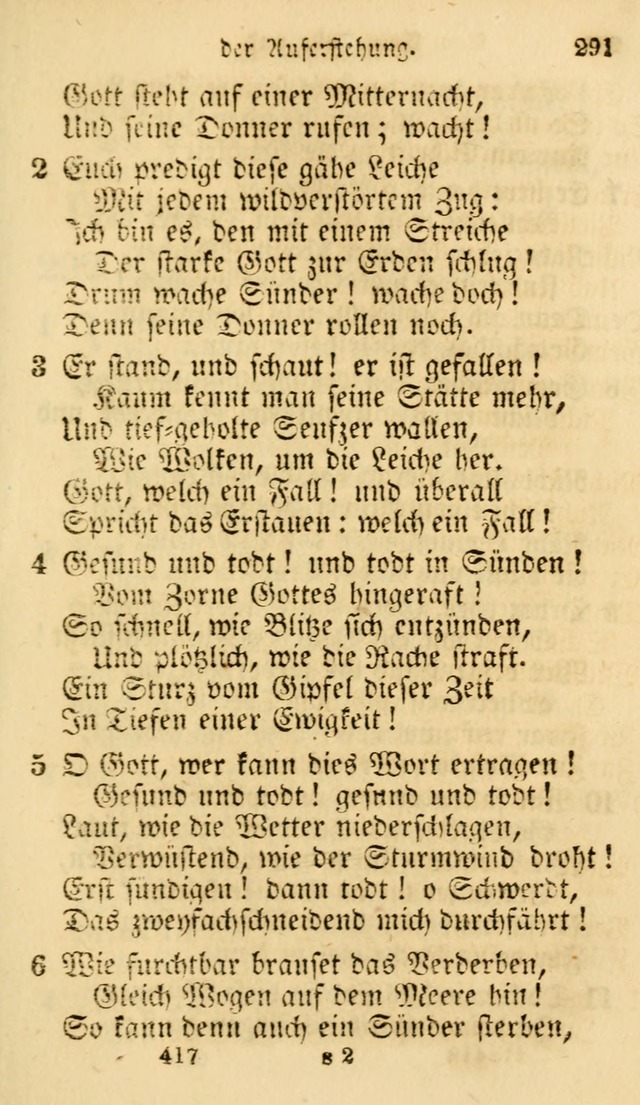 der Auferstehung. 291
Gott steht auf einer Mitternacht,
Und seine Donner rufen; wacht!
2 Euch predigt diese gähe Leiche
Mit jedem wildverstörtem Zug:
Ich bin es, den mit einem Streiche
Der starke Gott zur Erden schlug!
Drum wache Sünder! wache doch!
Denn seine Donner rollen noch.
3 Er stand, und schaut! er ist gefallen!
Kaum kennt man seine Stätte mehr,
Und tief-geholte Seufzer wallen,
Wie Wolken, um die Leiche her.
Gott, welch ein Fall! und überall
Spricht das Erstauen: welch ein Fall!
4 Gesund und todt! und todt in Sünden!
Vom Zorne Gottes hingeraft!
So schnell, wie Blitze sich entzünden,
Und plötzlich, wie die Rache straft.
Ein Sturz vom Gipfel dieser Zeit
In Tiefen einer Ewigkeit!
5 O Gott, wer kann dies Wort ertragen!
Gesund und todt! gesund und todt!
Laut, wie die Wetter niederschlagen,
Verwüstend, wie der Sturmwind droht!
Erst sündigen! dann todt! o Schwerdt,
Das zweyfachschneidend mich durchfährt!
6 Wie furchtbar brauset das Verderben,
Gleich Wogen auf dem Meere hin!
So kann denn auch ein Sünder sterben,
417 s 2